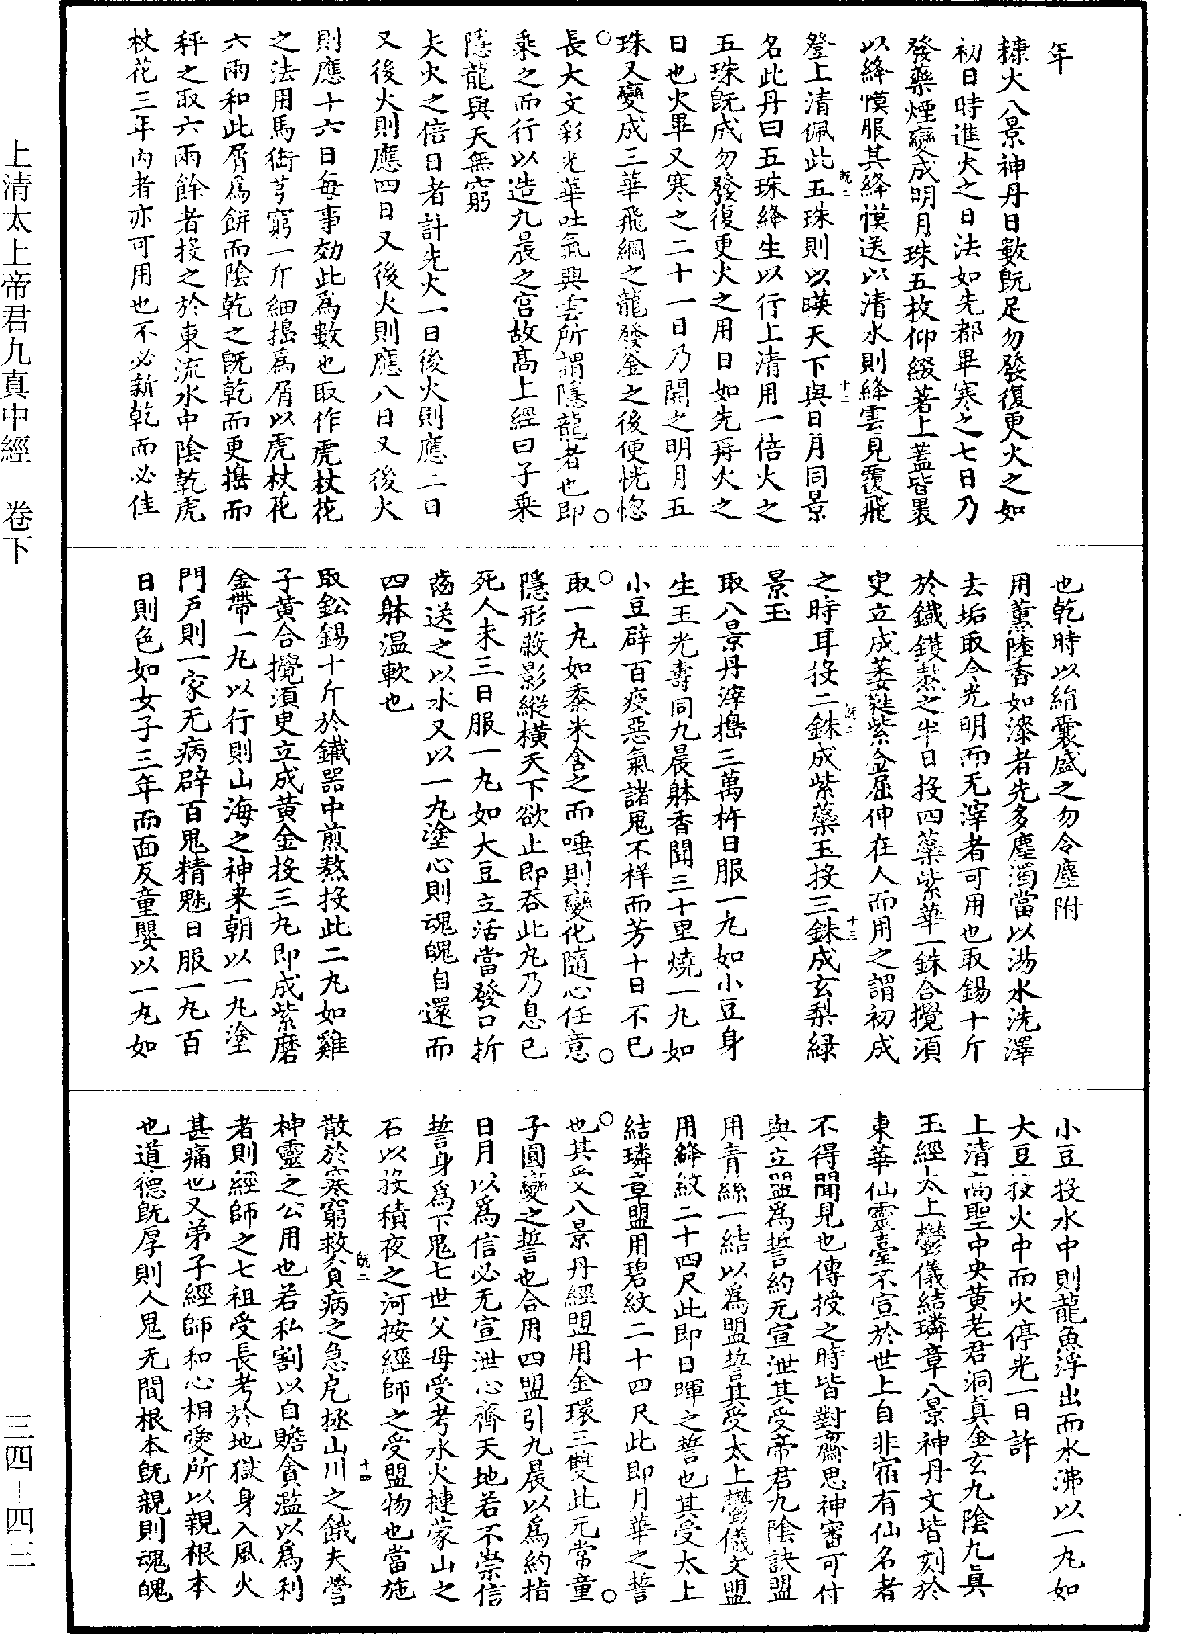 年
糠火八景神丹日數既足勿發復更火之如
初日時進火之日法如先都畢寒之七日乃
發藥煙變成明月珠五枚仰綴著上蓋皆裹
以絳幙服其絳幙送以清水則絳雲見覆飛
登上清佩此五珠則以暎天下與日月同景
名此丹曰五珠絳生以行上清用一倍火之
五珠既成勿發復更火之用日如先再火之
日也火畢又寒之二十一日乃開之明月五
珠又變成三華飛綱之龍發釜之後便恍惚
長大文彩光華吐氣與雲所謂隱龍者也即
乘之而行以造九晨之宮故高上經曰子乘
隱龍與天無窮
夫火之倍日者計先火一日後火則應二日
又後火則應四日又後火則應八日又後火
則應十六日每事効此爲數也取作虎杖花
之法用馬銜芎窮一斤細擣爲屑以虎杖花
六兩和此屑爲餅而陰乾之既乾而更擣而
秤之取六兩餘者投之於東流水中陰乾虎
杖花三年內者亦可用也不必新乾而必佳
也乾時以絹囊盛之勿令塵附
用薰陸香如漆者先多塵濁當以湯水洗澤
去垢取令光明而无滓者可用也取錫十斤
於鐵鑊熬之半日投四藥紫華一銖合攪須
史立成萎蕤紫金屈伸在人而用之謂初成
之時耳投二銖成紫藥玉投三銖成玄梨綠
景玉
取八景丹滓擣三萬杵日服一丸如小豆身
生玉光壽同九晨躰香聞三十里燒一丸如
小豆辟百疫惡氣諸鬼不祥而芳十日不已
取一丸如黍米含之而唾則變化隨心任意
隱形藏影縱橫天下欲止即吞此丸乃息已
死人未三日服一丸如大豆立活當發口折
齒送之以水又以一丸塗心則魂魄自還而
四躰温軟也
取鈆錫十斤於鐵器中煎熬投此二丸如雞
子黄合攪須史立成黄金投三丸即成紫磨
金帶一丸以行則山海之神来朝以一丸塗
門戶則一家无病辟百鬼精魅日服一丸百
日則色如女子三年而面反童嬰以一丸如
小豆投水中則龍魚浮出而水沸以一丸如
大豆投火中而火停光一日許
上清高聖中央黄老君洞真金玄九陰九真
玉經太上鬱儀結璘章八景神丹文皆刻於
東華仙靈臺不宣於世上自非宿有仙名者
不得聞見也傳授之時皆對齋思神審可付
與立盟爲誓約无宣泄其受帝君九陰訣盟
用青絲一結以爲盟誓其受太上鬱儀文盟
用絳紋二十四尺此即日暉之誓也其受太上
結璘章盟用碧紋二十四尺此即月華之誓
也其受八景丹經盟用金環三雙此元常童
子圓變之誓也合用四盟引九晨以爲約指
日月以爲信必无宣泄心齊天地若不崇信
誓身爲下鬼七世父母受考水火揵蒙山之
石以投積夜之河按經師之受盟物也當施
散於寒窮救貧病之急危拯山川之餓夫營
神靈之公用也若私割以自贍貪濫以爲利
者則經師之七祖受長考於地獄身入風火
甚痛也又弟子經師和心相愛所以親根本
也道德既厚則人鬼无間根本既親則魂魄
上清太上帝君九真中經　卷下
三四-四三